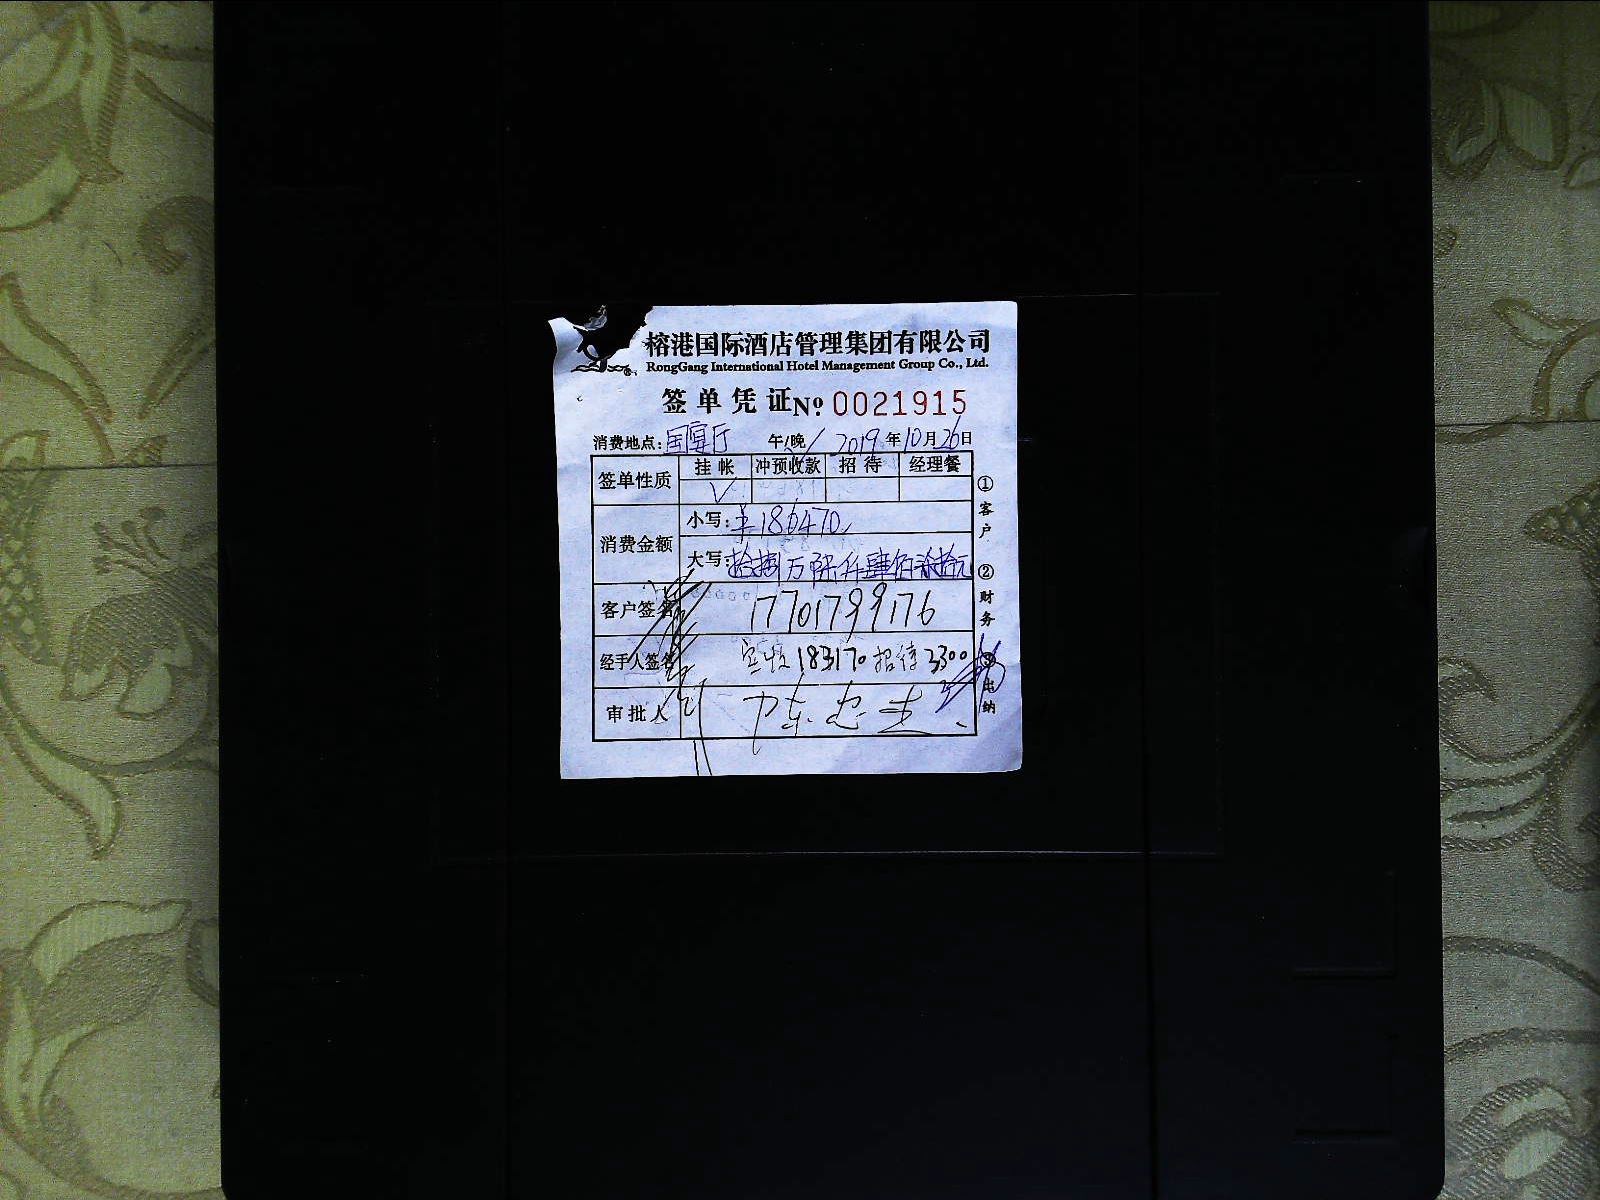 榕港国际酒店管理集团有限公司
RongGang International Hotel Management Group Co., Ltd.
签单凭证 Nº 0021915
消费地点:国宴厅 午/晚 2019年10月26日
签单性质 挂帐 冲预收款 招待 经理餐
√
消费金额 小写:¥186470
大写:拾捌万陆仟肆佰柒拾元
客户签名 17701799176
经手人签名 实收183170 招待3300
审批人
①客户 ②财务 ③出纳